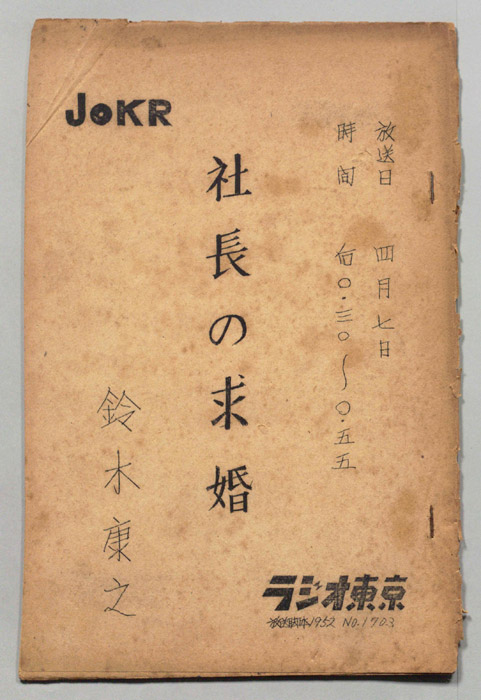 JOKR
放送日 四月七日
時間 〇・三〇〜〇・五五
社長の求婚
鈴木康之
ラジオ東京
放送脚本1952 No.1703